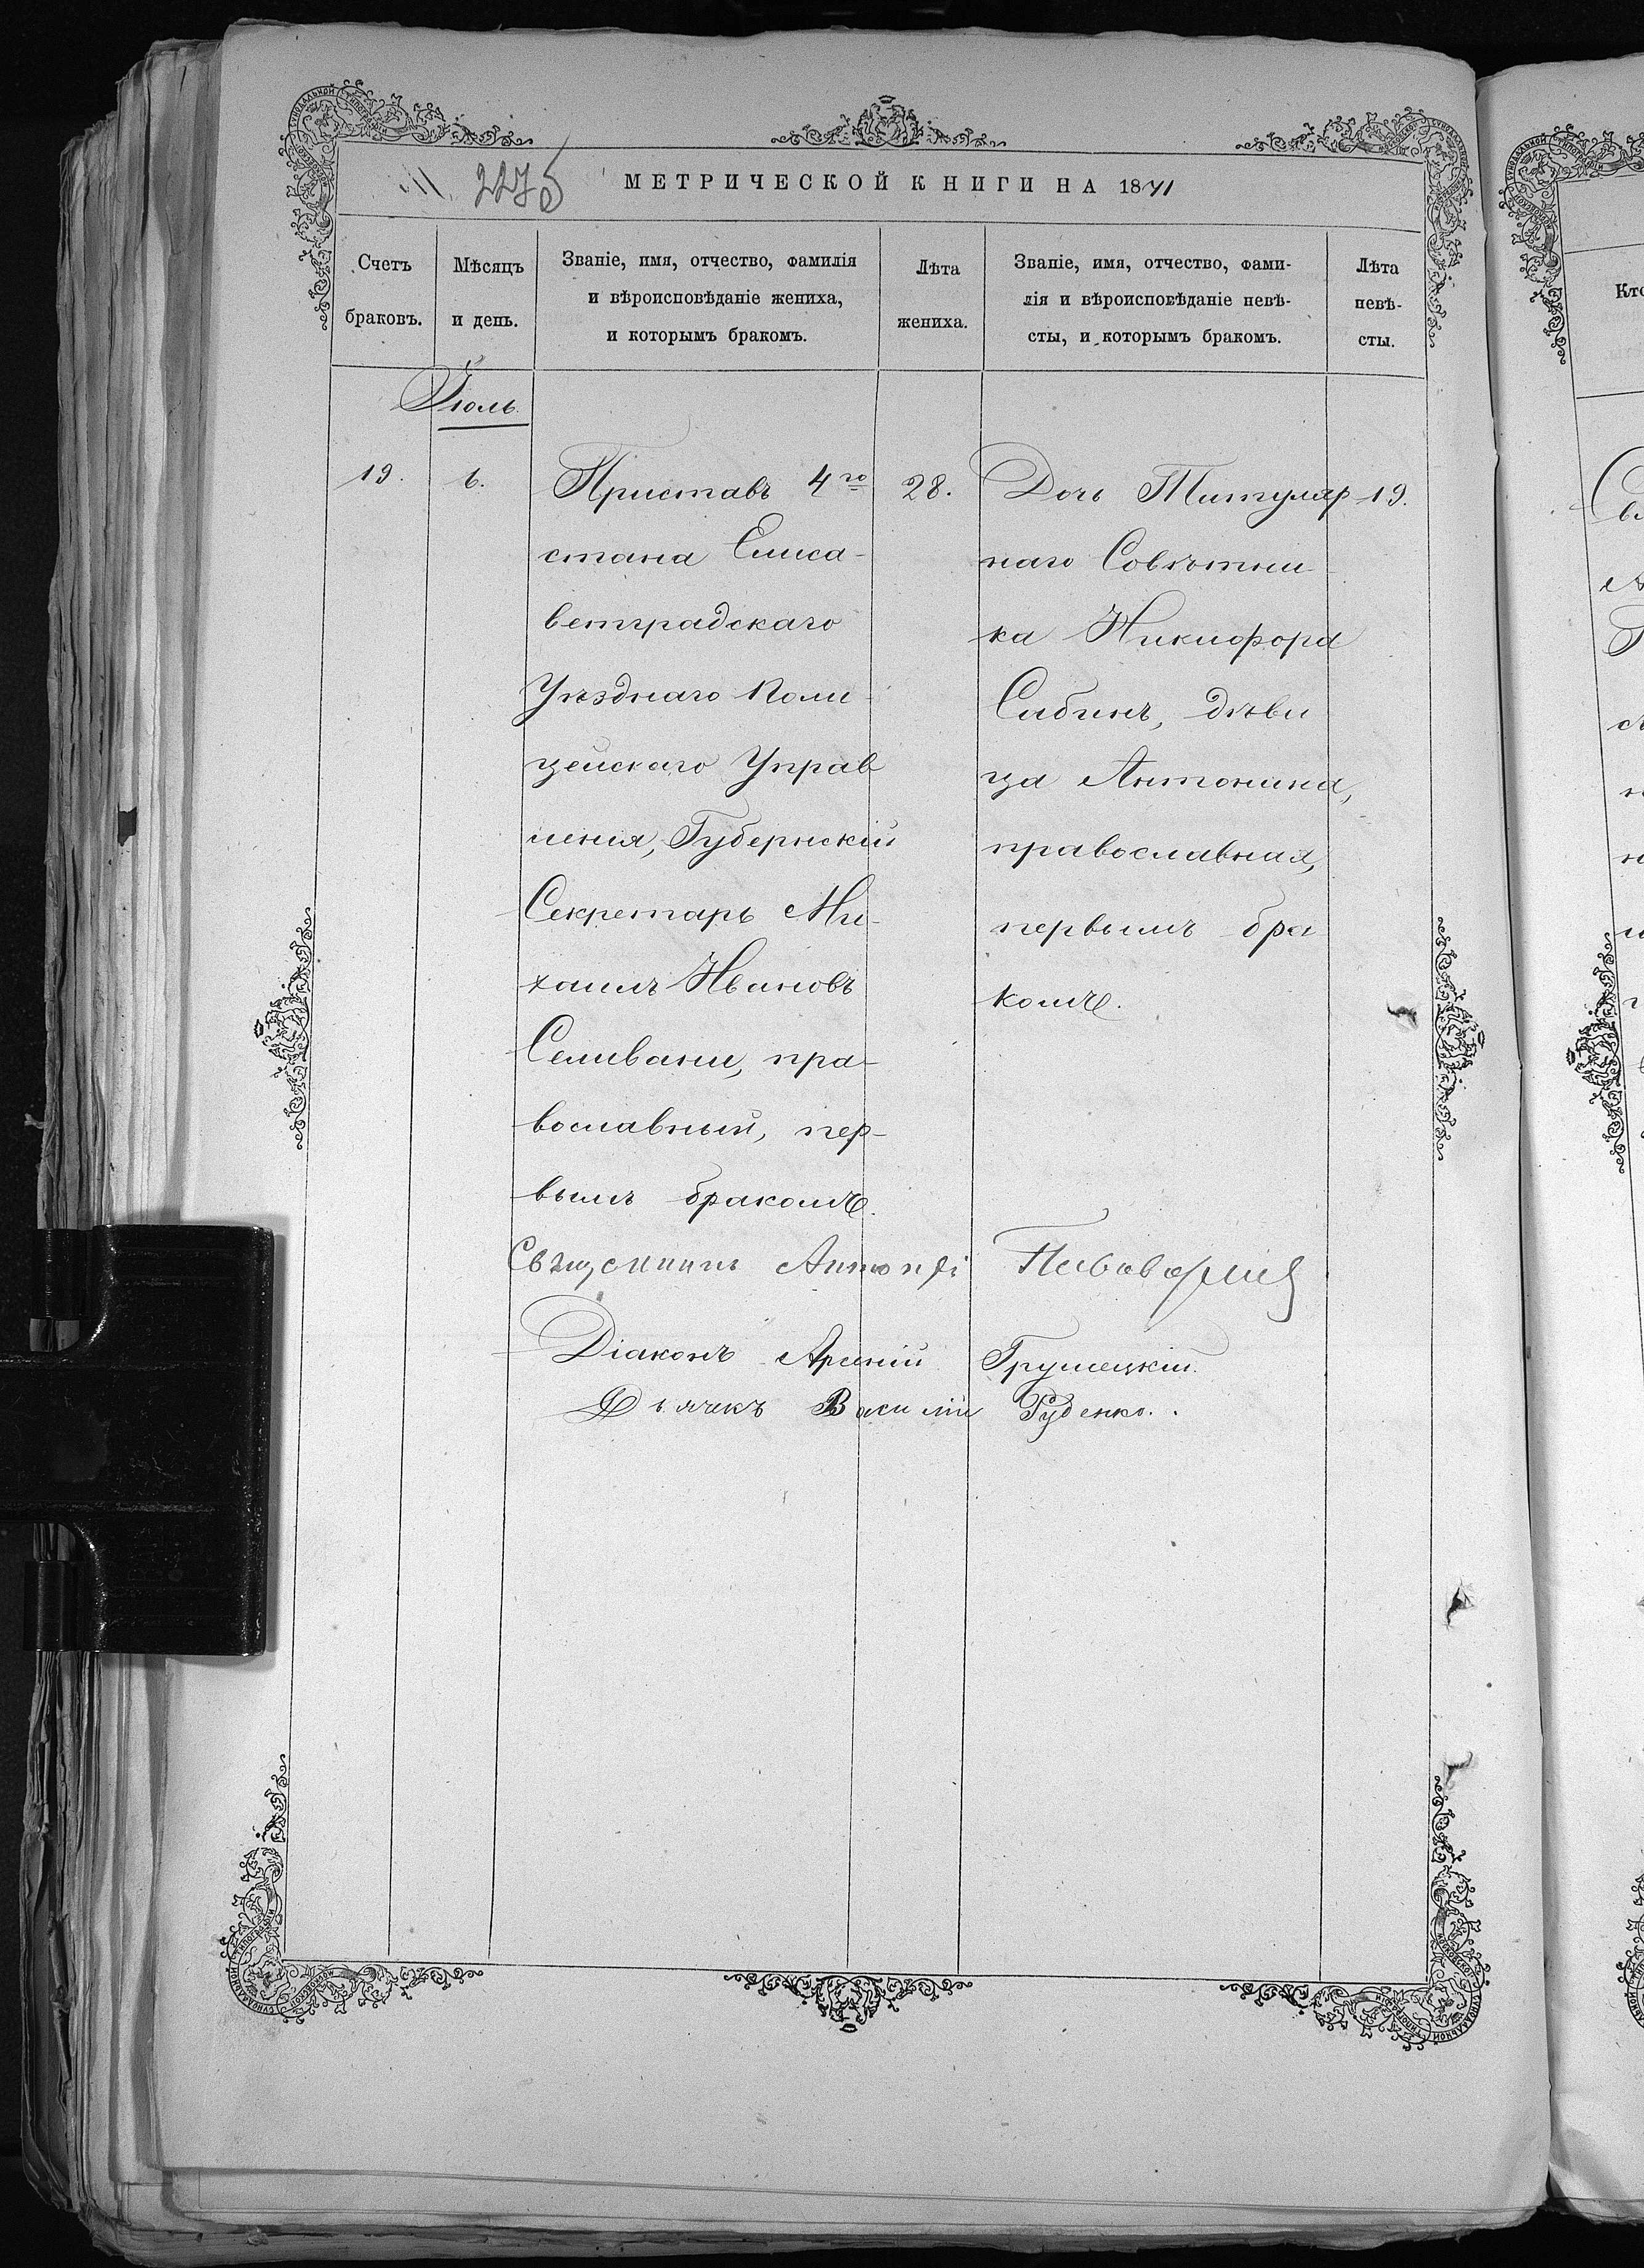 2275
МЕТРИЧЕСКОЙ КНИГИ НА 1871
Счетъ браковъ.
Мѣсяцъ и день.
Званіе, имя, отчество, фамилія
и вѣроисповѣданіе жениха,
и которымъ бракомъ.
Лѣта
жениха.
Званіе, имя, отчество, фами-
лія и вѣроисповѣданіе невѣ-
сты, и которымъ бракомъ.
Лѣта
невѣ-
сты.
Іюль.
19.
6.
Приставъ 4го
стана Елиса-
ветградскаго
Уѣзднаго Поли-
цейскаго Управ
ленія, Губернскій
Секретарь Ми-
хаилъ Ивановъ
Селивани, пра-
вославный, пер-
вымъ бракомъ.
28.
Дочь Титуляр
наго Совѣтни-
ка Никифора
Сабинъ, дѣви
ца Антонина,
православная,
первымъ бра
комъ.
19.
Священникъ Антоній Пивоваровъ
Діаконъ Арсеній Грушецкій.
Дьячекъ Василій Руденко.